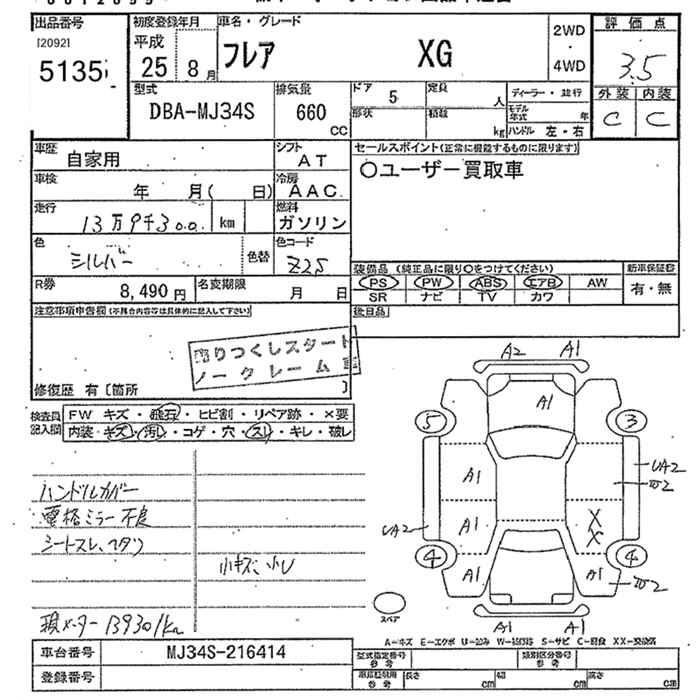 出品番号
120921
5135
初度登録年月
平成
25 8月
車名・グレード
フレア XG
2WD
・
4WD
評価点
3.5
外装 内装
C C
型式
DBA-MJ34S
排気量
660
CC
ドア
5
定員
人
形状
積載
kg
ディーラー・並行
モデル年式 年
ハンドル 左・右
車歴
自家用
シフト
AT
セールスポイント(正常に機能するものに限ります)
〇ユーザー買取車
車検
年 月( 日)
冷房
AAC
走行
13万9千300 km
燃料
ガソリン
色
シルバー
色替
色コード
Z2S
装備品 (純正品に限り〇をつけてください)
PS PW ABS エアB AW
SR ナビ TV カワ
新車保証書
有・無
R券
8,490円
名変期限
月 日
後日品
注意事項申告欄(不具合内容等は具体的に記入して下さい)
売りつくしスタート
ノークレーム
修復歴 有〔箇所 〕
検査員
記入欄
FW キズ・飛石・ヒビ割・リペア跡・×要
内装・キズ・汚れ・コゲ・穴・スレ・キレ・破レ
ハンドルカバー
電格ミラー不良
シートスレ、ヘタリ
小キズ、小U
現メーター 139301km
A2 A1
A1
5 3
A1
UA2
ワ2
A1
X
X
UA2
4 4
A1 A1
ワ2
スペア
A1 A1
A-キズ E-エクボ U-凹み W-補修跡 S-サビ C-腐食 XX-交換済
車台番号
MJ34S-216414
型式指定番号
参考
類別区分番号
参考
登録番号
車積載用
参考
長さ cm
幅 cm
高さ cm